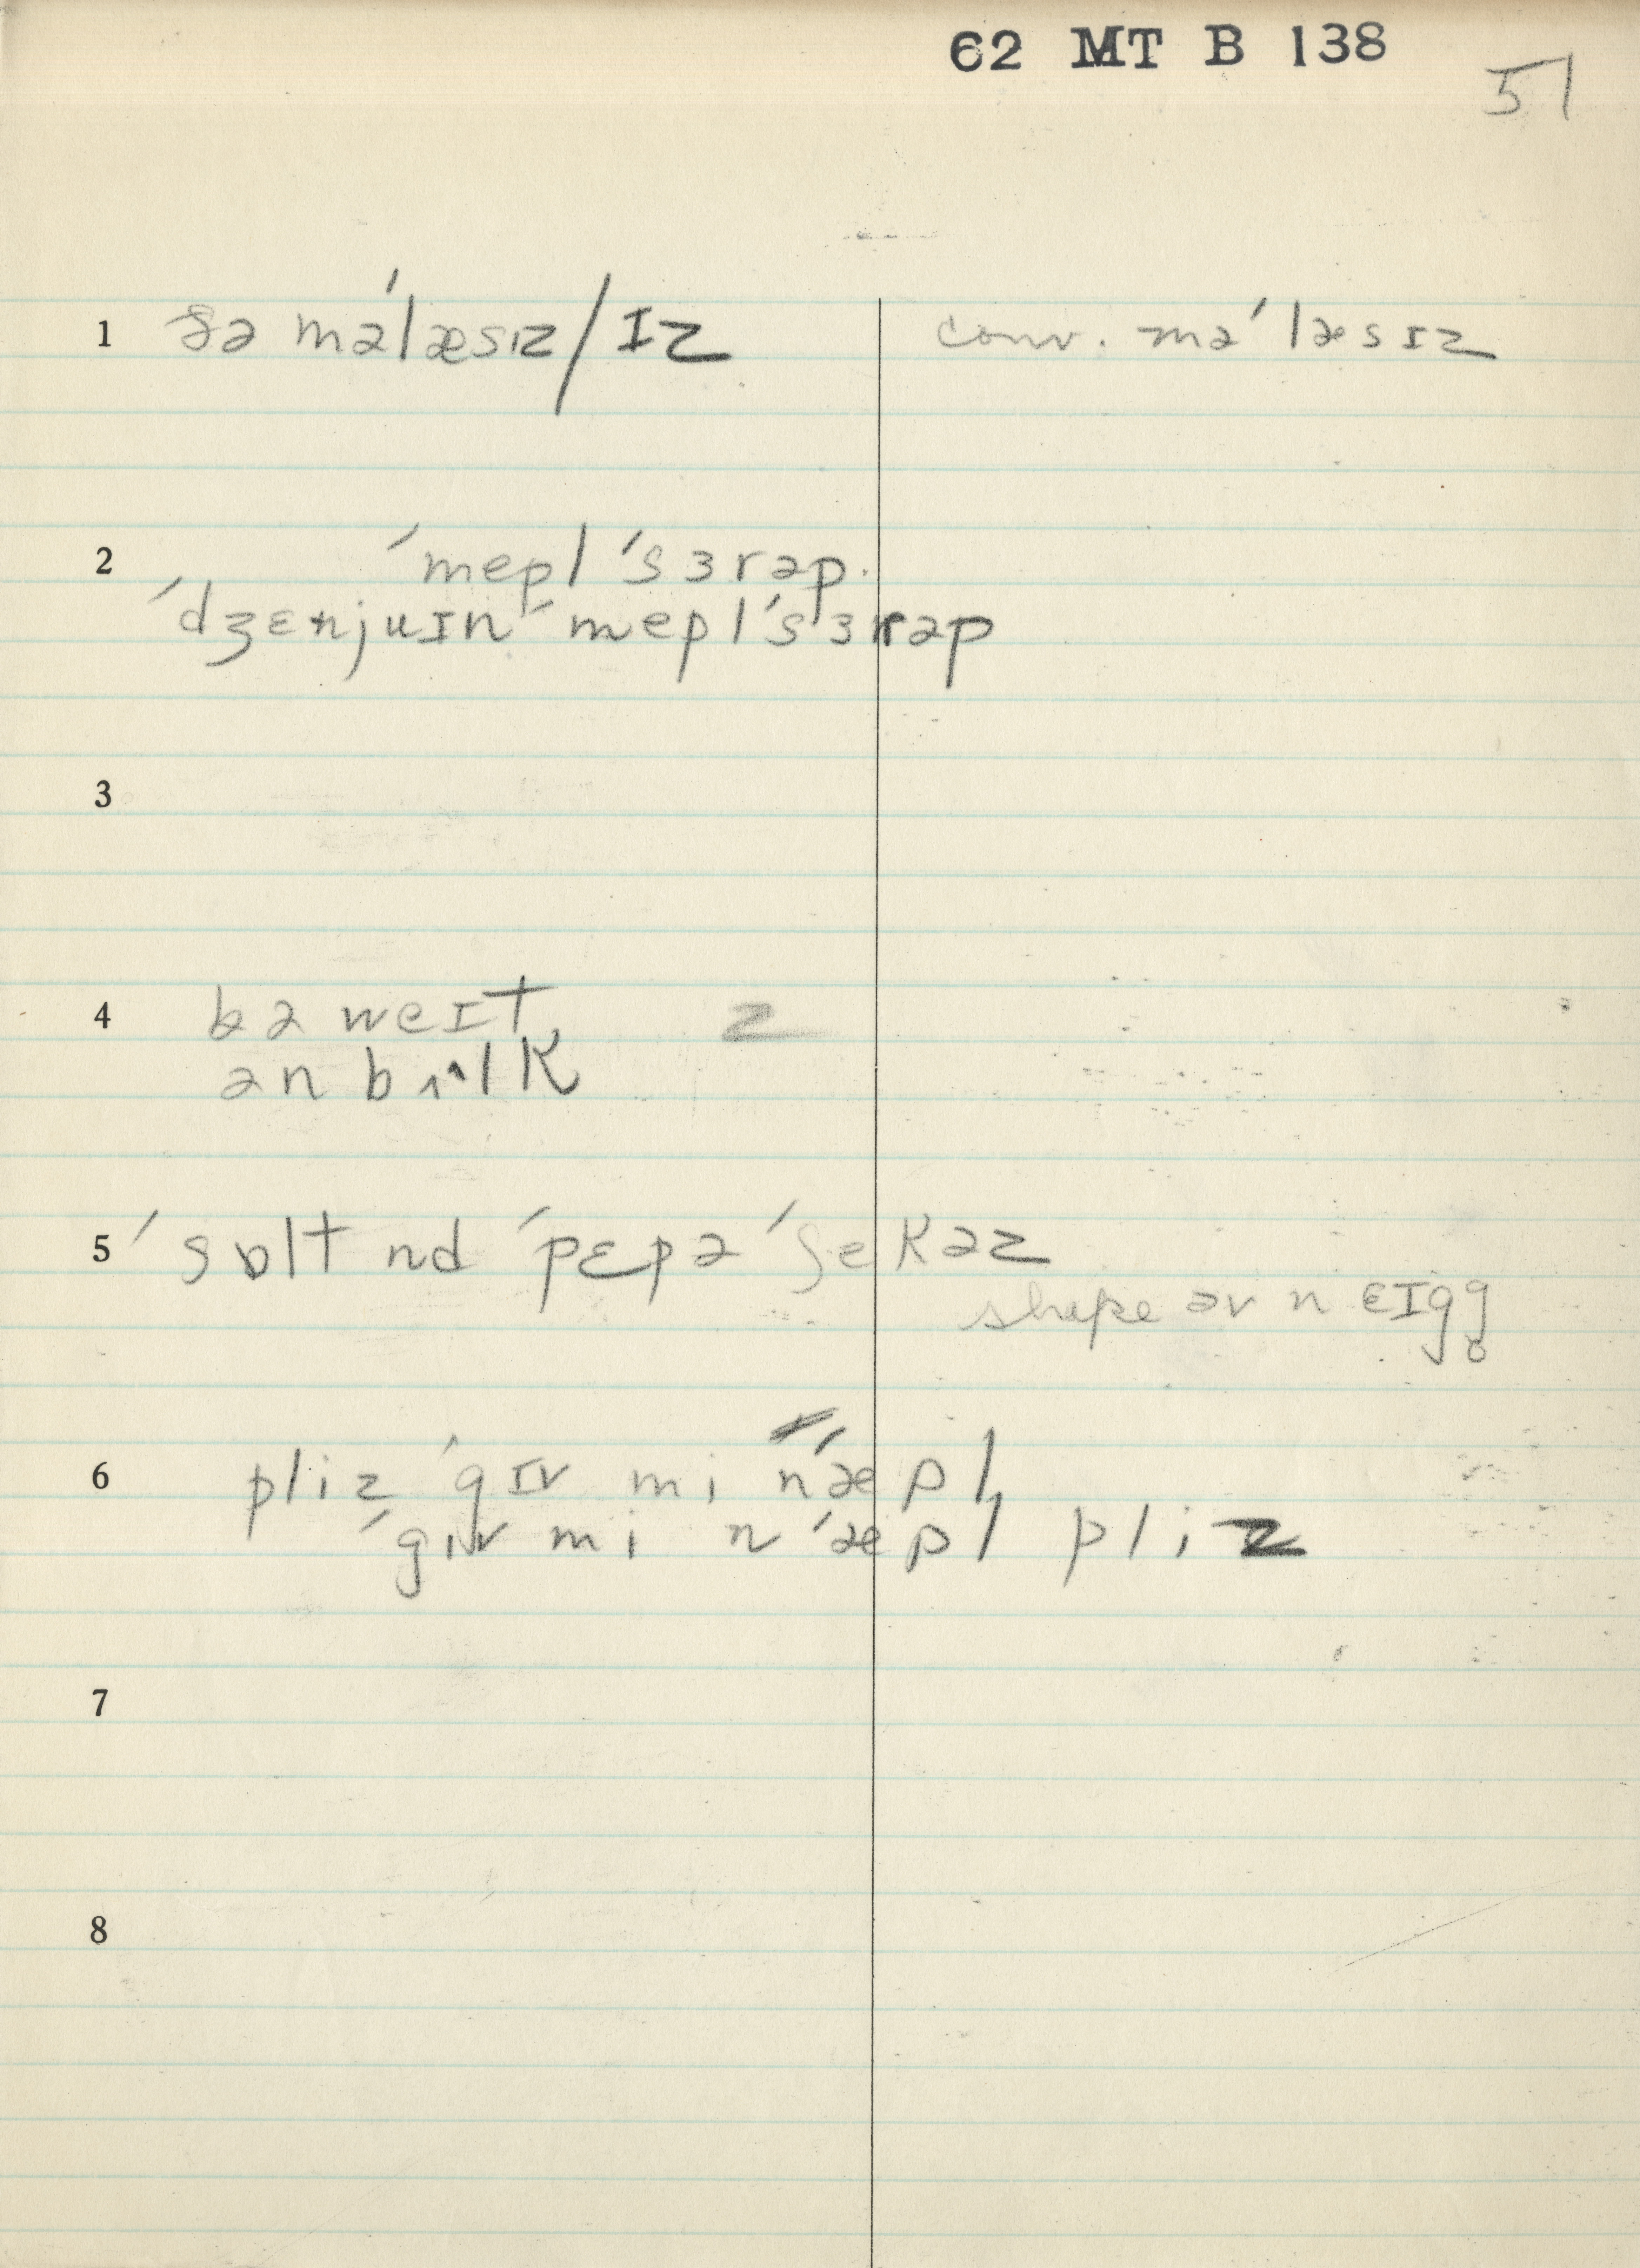 62 MT B 138
51
1 ðə mə'læsɪz/ɪz conv. mə'læsɪz
2 'mepl 'sɜrəp.
'dʒɛnjuɪn 'mepl 'sɜrəp
3
4 bə weɪt z
ən bʌlk
5 'sɒlt nd 'pɛpə 'ʃekəz
shape əv n ɛɪgg̥
6 pliz 'gɪv mi n'æpl
'gɪv mi n'æpl pliz
7
8